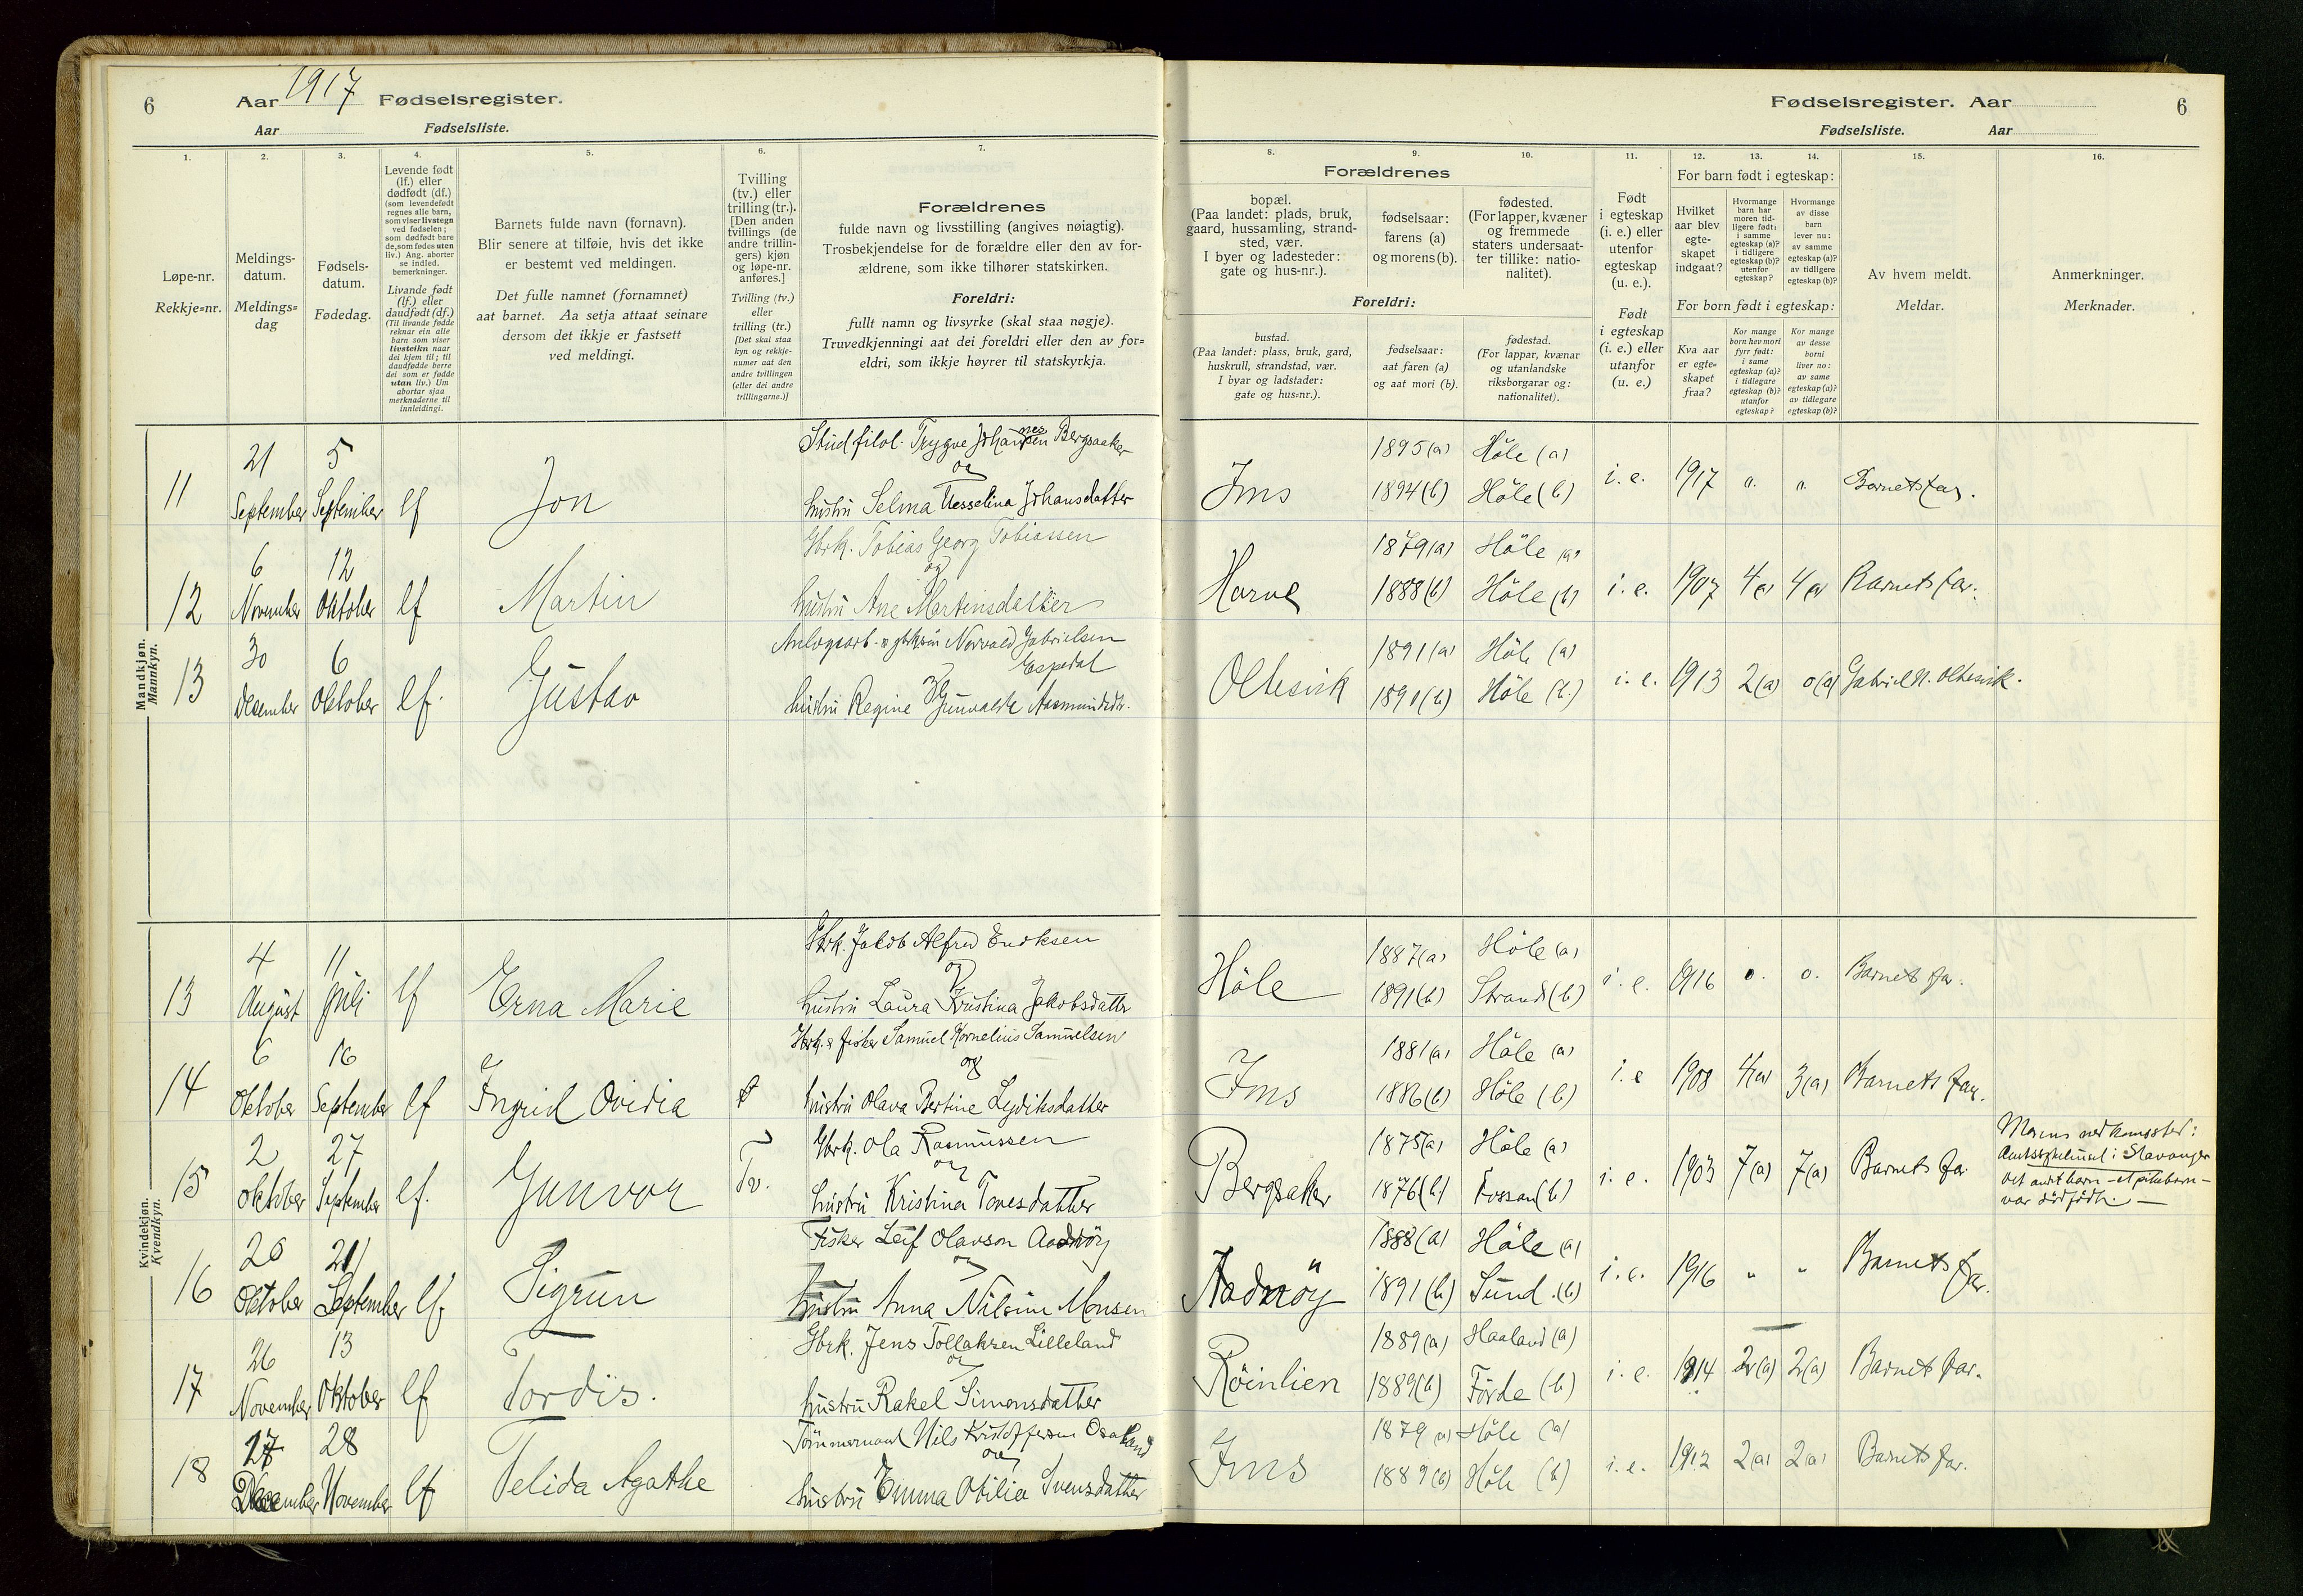 6
Aar 1917 Fødselsregister.
Aar Fødselsliste.
Fødselsregister. Aar
6
Fødselsliste. Aar
1.
Løpe-nr.
Rekkje=nr.
2.
Meldings-
datum.
Meldings=
dag
3.
Fødsels-
datum.
Fødedag.
4.
Levende født
(lf.) eller
dødfødt (df.)
(som levendefødt
regnes alle barn,
som viser livstegn
ved fødselen;
som dødfødt bare
de, som fødes uten
liv.) Ang. aborter
se indled.
bemerkninger.
Livande født
(lf.) eller
daudfødt (df.)
(Til livande fødde
reknar ein alle
barn som viser
livsteikn naar
dei kjem til; til
daudfødde berre
dei som er fødde
utan liv.) Um
abortar sjaa
merknaderne til
innleidingi.
5.
Barnets fulde navn (fornavn).
Blir senere at tilføie, hvis det ikke
er bestemt ved meldingen.
Det fulle namnet (fornamnet)
aat barnet. Aa setja attaat seinare
dersom det ikkje er fastsett
ved meldingi.
6.
Tvilling
(tv.) eller
trilling (tr.).
[Den anden
tvillings (de
andre trillin-
gers) kjøn
og løpe-nr.
anføres.]
Tvilling (tv.)
eller
trilling (tr.)
[Det skal staa
kyn og rekkje-
numer aat den
andre tvillingen
(eller dei andre
trillingarne.)]
7.
Forældrenes
fulde navn og livsstilling (angives nøiagtig).
Trosbekjendelse for de forældre eller den av for-
ældrene, som ikke tilhører statskirken.
Foreldri:
fullt namn og livsyrke (skal staa nøgje).
Truvedkjenningi aat dei foreldri eller den av for=
eldri, som ikkje høyrer til statskyrkja.
8.
Forældrenes
bopæl.
(Paa landet: plads, bruk,
gaard, hussamling, strand-
sted, vær.
I byer og ladesteder:
gate og hus-nr.).
Foreldri:
bustad.
(Paa landet: plass, bruk, gard,
huskrull, strandstad, vær.
I byar og ladstader:
gate og hus=nr.).
9.
fødselsaar:
farens (a)
og morens (b).
fødselsaar:
aat faren (a)
og aat mori (b).
10.
fødested.
(For lapper, kvæner
og fremmede
staters undersaat-
ter tillike: natio-
nalitet).
fødestad.
(For lappar, kvænar
og utanlandske
riksborgarar og:
nationalitet).
11.
Født
i egteskap
(i. e.) eller
utenfor
egteskap
(u. e.).
Født
i egteskap
(i. e.) eller
utanfor
(u. e.)
12. 13. 14.
For barn født i egteskap:
Hvilket
aar blev
egte-
skapet
indgaat?
Hvormange
barn har
moren tid-
ligere født:
i samme
egteskap (a)?
i tidligere
egteskap (b)?
utenfor
egteskap?
Hvormange
av disse
barn
lever nu:
av samme
egteskap (a)?
av tidligere
egteskap (b)?
For born født i egteskap:
Kva aar
er egte=
skapet
fraa?
Kor mange
born hev mori
fyrr født:
i same
egteskap (a)?
i tidlegare
egteskap (b)?
utanfor
egteskap?
Kor mange
av desse
borni
liver no:
av same
egteskap (a)?
av tidlegare
egteskap (b)?
15.
Av hvem meldt.
Meldar.
16.
Anmerkninger.
Merknader.
Mandkjøn.
Mannkyn.
11 21 September 5 September lf Jon
Stud filol. Trygve Johannes Bergsaaker
og
hustru Selma Tesselina Johansdatter
Ims 1895 (a) 1894 (b) Höle (a) Höle (b) i. e. 1917 " " Barnets far.
12 6 November 12 Oktober lf Martin
Gbrk. Tobias Georg Tobiassen
og
hustru Ane Martinsdatter
Horve 1879 (a) 1888 (b) Höle (a) Höle (b) i. e. 1907 4 (a) 4 (a) Barnets far.
13 30 Desember 6 Oktober lf. Gustav
Norvald Gabrielsen
Espedal
og
hustru Regine Gunvalde Aasmundsdtr.
Oltesvik 1891 (a) 1890 (b) Höle (a) Höle (b.) i. e. 1913 2 (a) 0 (a) Gabriel N. Oltesvik.
Kvindekjøn.
Kvendkyn.
13 4 August 11 Juli lf Erna Marie
Gbrk. Jakob Alfred Eriksen
og
hustru Laura Kristina Jakobsdatter
Höle 1887 (a) 1891 (b) Höle (a) Strand (b) i. e. 1916 0. 0. Barnets far.
14 6 Oktober 16 September lf Ingrid Ovidia
Gbrk. & fisker Samuel Kornelius Samuelsen
og
hustru Olava Bertine Lydiksdatter
Ims 1881 (a) 1886 (b) Höle (a) Höle (b) i. e 1908 4 (a) 3 (a) Barnets far.
15 2 Oktober 27 September lf. Gunvor Tv.
Gbrk. Ola Rasmussen
og
hustru Kristina Tonesdatter
Bergsaker 1875 (a) 1876 (b) Höle (a) Fossan (b) i. e. 1903 7 (a) 7 (a) Barnets far
Morens nedkomststed:
Amtssykehuset i Stavanger
Det andet barn – et pikebarn –
var dödfödt. —
16 20 Oktober 21 September lf Sigrun
Fisker Leif Olavson Aadnöy
og
hustru Anna Nilsine Monsen
Aadnöy 1888 (a) 1891 (b) Höle (a) Sund. (b) i. e. 1916 " " Barnets far.
17 26 November 13 Oktober lf Tordis.
Gbrk. Jens Tollaksen Lilleland
og
hustru Rakel Simonsdatter
Röinlien 1889 (a) 1889 (b) Haaland (a) Förde (b) i. e. 1914 2 (a) 2 (a) Barnets far.
18 17 Desember 28 November lf Telida Agathe
Tömmermand Nils Kristoffersen Osaland
og
hustru Emma Otilie Svensdatter
Ims 1879 (a) 1889 (b) Höle (a) Höle (b) i. e. 1912 2 (a) 2 (a) Barnets far.